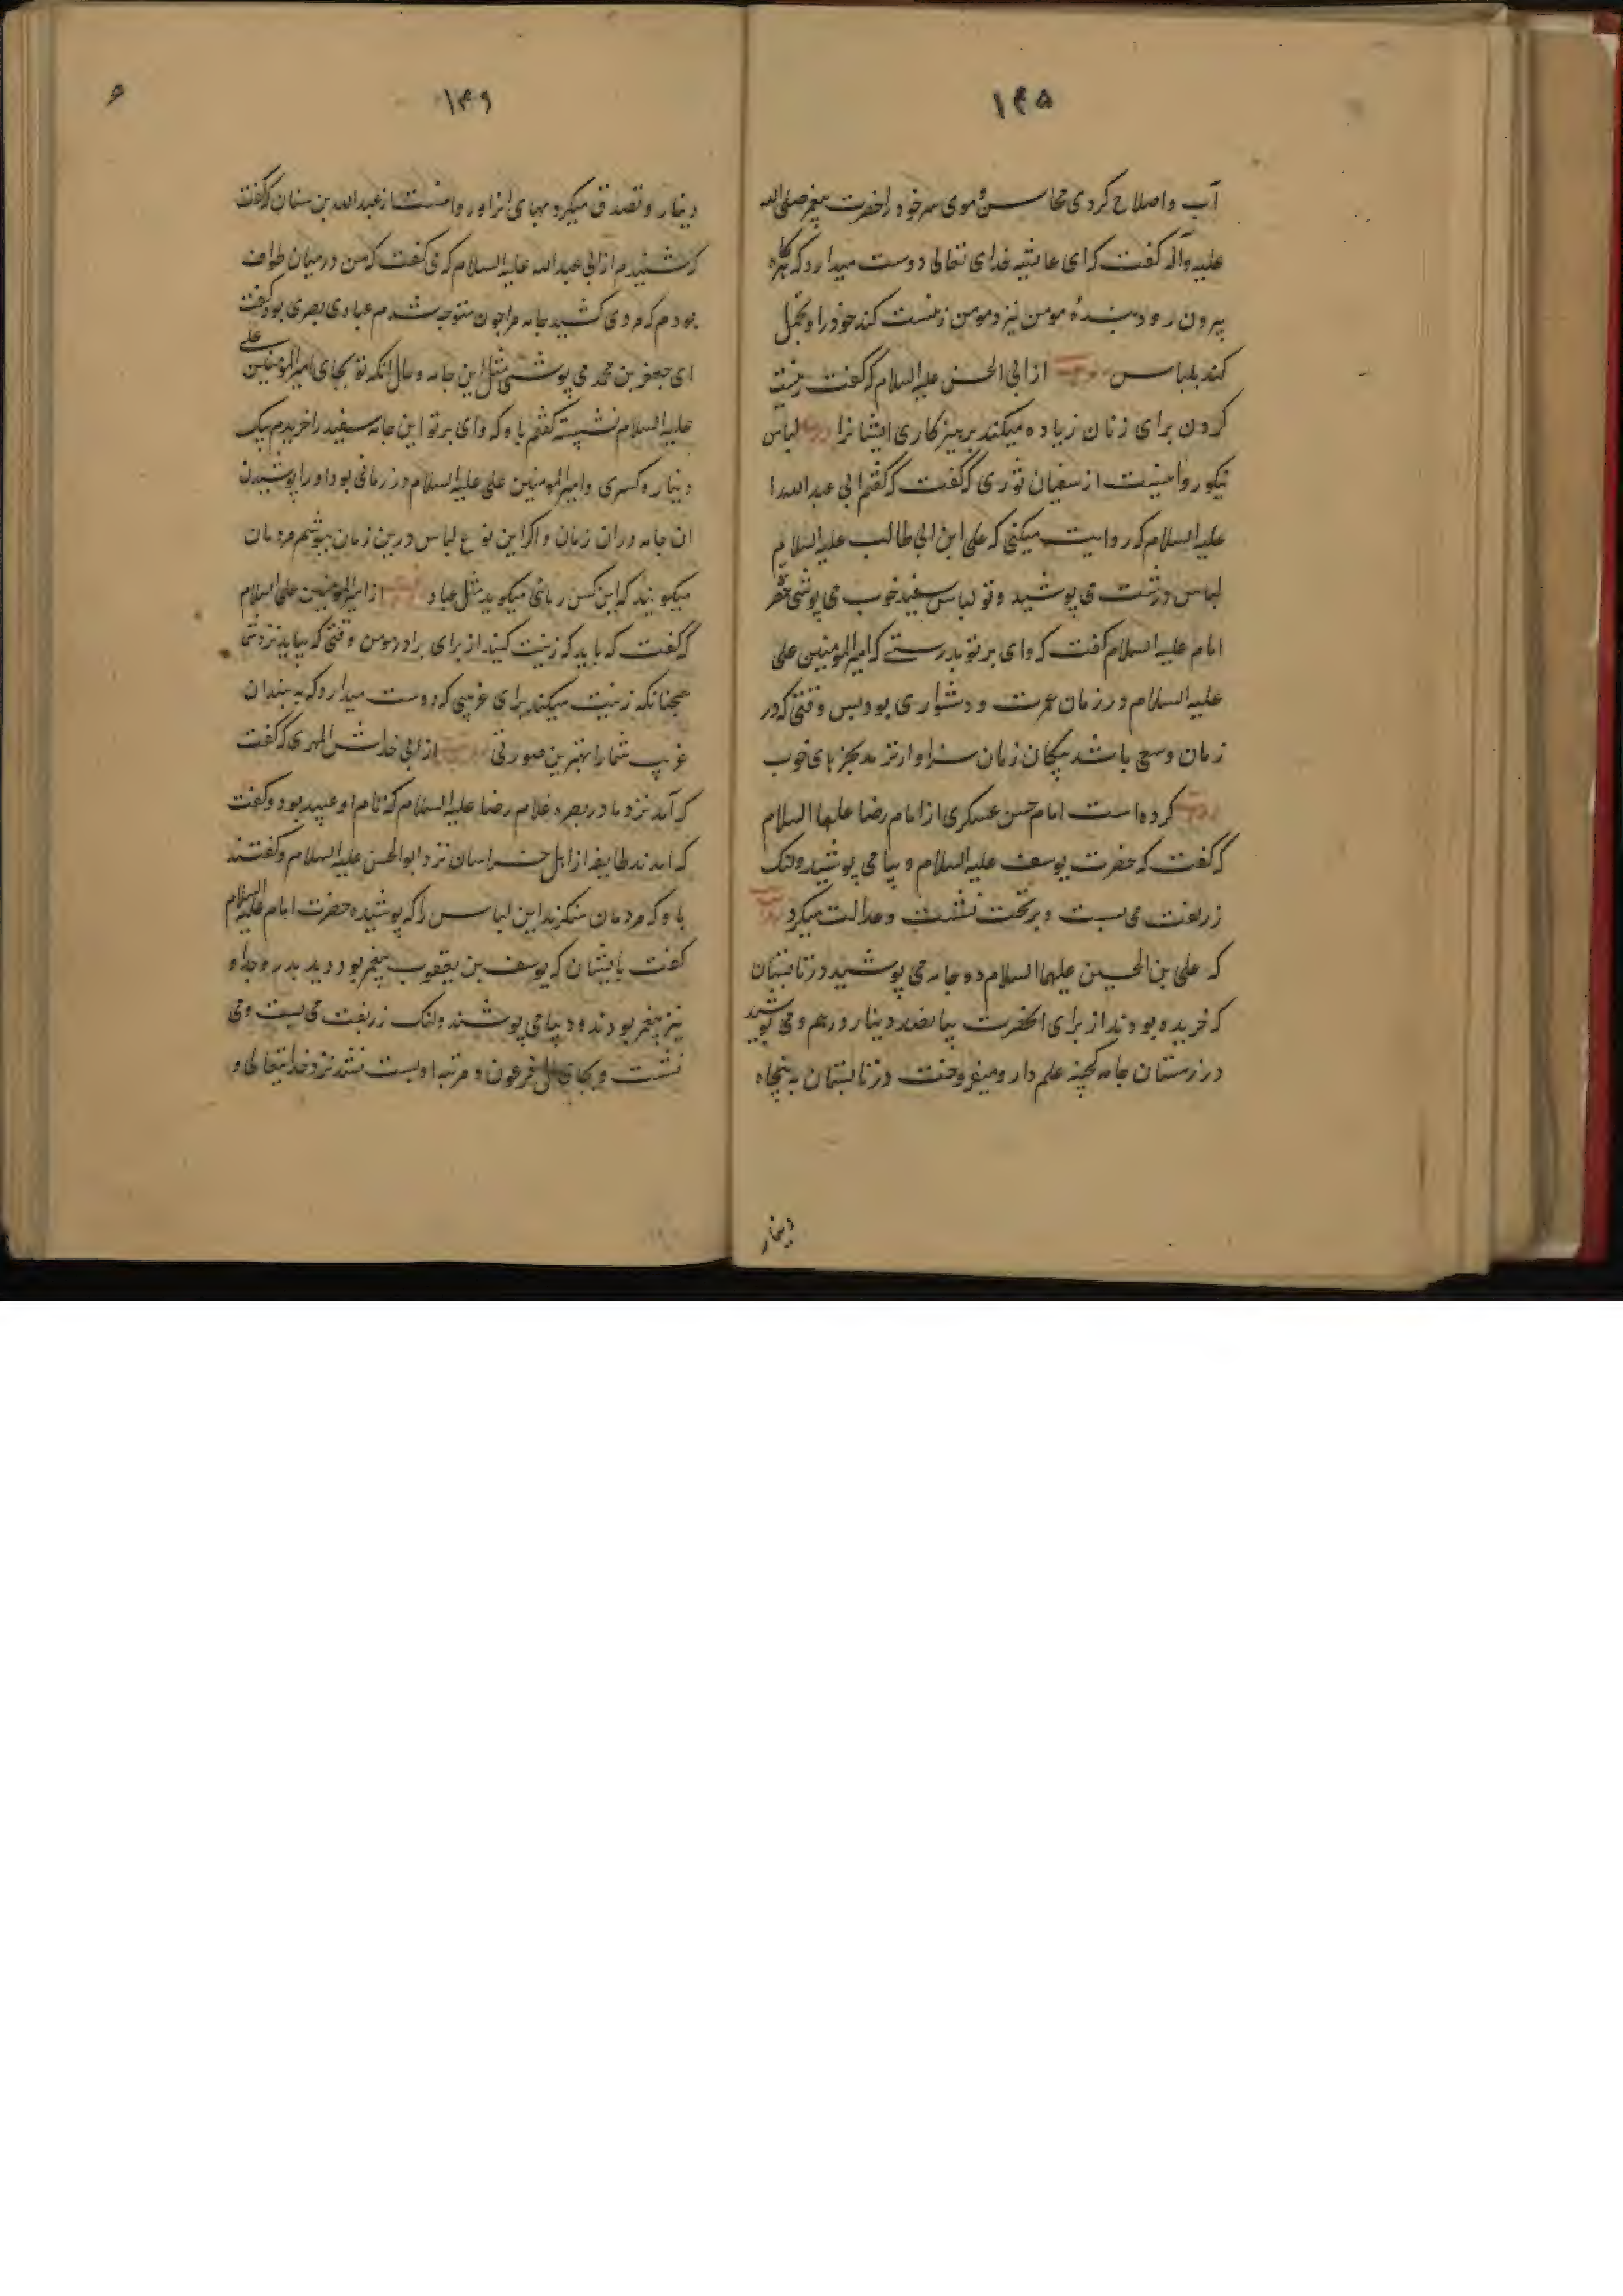 ۱۴۵
آب و اصلاح کردی محاسن و موی سر خود را حضرت پیغمبر صلی الله
علیه وآله گفت که ای عایشه خدای تعالی دوست میدارد که هرگاه
بیرون رود بندهٔ مومن نیزد مومن زینت کند خود را و تجمل
کند بلباس از ابی الحسن علیه السلام که گفت زینت
کردن برای زنان زیاده میکند پرهیزکاری ایشانرا لباس
نیکو روایتست از سفیان ثوری که گفت که گفتم ابی عبدالله را
علیه السلام که روایت میکنی که علی ابن ابی طالب علیه السلام
لباس درشت می پوشید و تو لباس سفید خوب می پوشی حضرت
امام علیه السلام گفت که وای بر تو بدرستی که امیرالمومنین علی
علیه السلام در زمان عسرت و دشواری بود پس وقتی که در
زمان وسع باشد نیکان زمان سزاوارترند بچیزهای خوب
روایت کرده است امام حسن عسکری از امام رضا علیهما السلام
که گفت که حضرت یوسف علیه السلام دیبا می پوشید و لنک
زربفت می بست و بر تخت نشست و عدالت میکرد روایت
که علی بن الحسین علیهما السلام دو جامه می پوشید در تابستان
که خریده بودند از برای آنحضرت بپانصد دینار درهم و می پوشید
در زمستان جامه علم دار و میفروخت در تابستان به پنجاه
دینار
۱۴۶
دینار و تصدق میکرد بهای انرا و روایتست از عبدالله بن سنان که گفت
که شنیدم از ابی عبدالله علیه السلام که می گفت که من در میان طواف
بودم که مردی کشید جامه مرا چون متوجه شدم عبادی بصری بود گفت
ای جعفر بن محمد می پوشی مثل این جامه و حال آنکه تو بجای امیرالمومنین علی
علیه السلام نشسته گفتم باو که وای بر تو این جامه سفید را خریدم بیک
دینار و کسری و امیرالمومنین علی علیه السلام در زمانی بود او را پوشیدن
ان جامه در ان زمان و اکر این نوع لباس درین زمان بپوشم مردمان
میکویند که این کس ریائی میکوید مثل عباد از امیرالمومنین علیه السلام
که گفت که باید که زینت کنید از برای برادر مومن وقتی که بیاید نزد شما
همچنانکه زینت میکند برای غریبی که دوست میدارد که به بیند ان
غریب شما را بهترین صورتی از ابی خداش المهری که گفت
که آمد نزد ما در بصره غلام رضا علیه السلام که نام او عبید بود و گفت
که امدند طایفه از اهل خراسان نزد ابوالحسن علیه السلام و گفتند
باو که مردمان منکرند این لباس را که پوشیده حضرت امام علیه السلام
گفت بایشان که یوسف بن یعقوب پیغمبر بود و پدر و جد او
نیز پیغمبر بودند و دیبا می پوشند و لنک زربفت می بست و می
نشست و بجای ال فرعون و مرتبه او پست نشد نزد خدایتعالی و